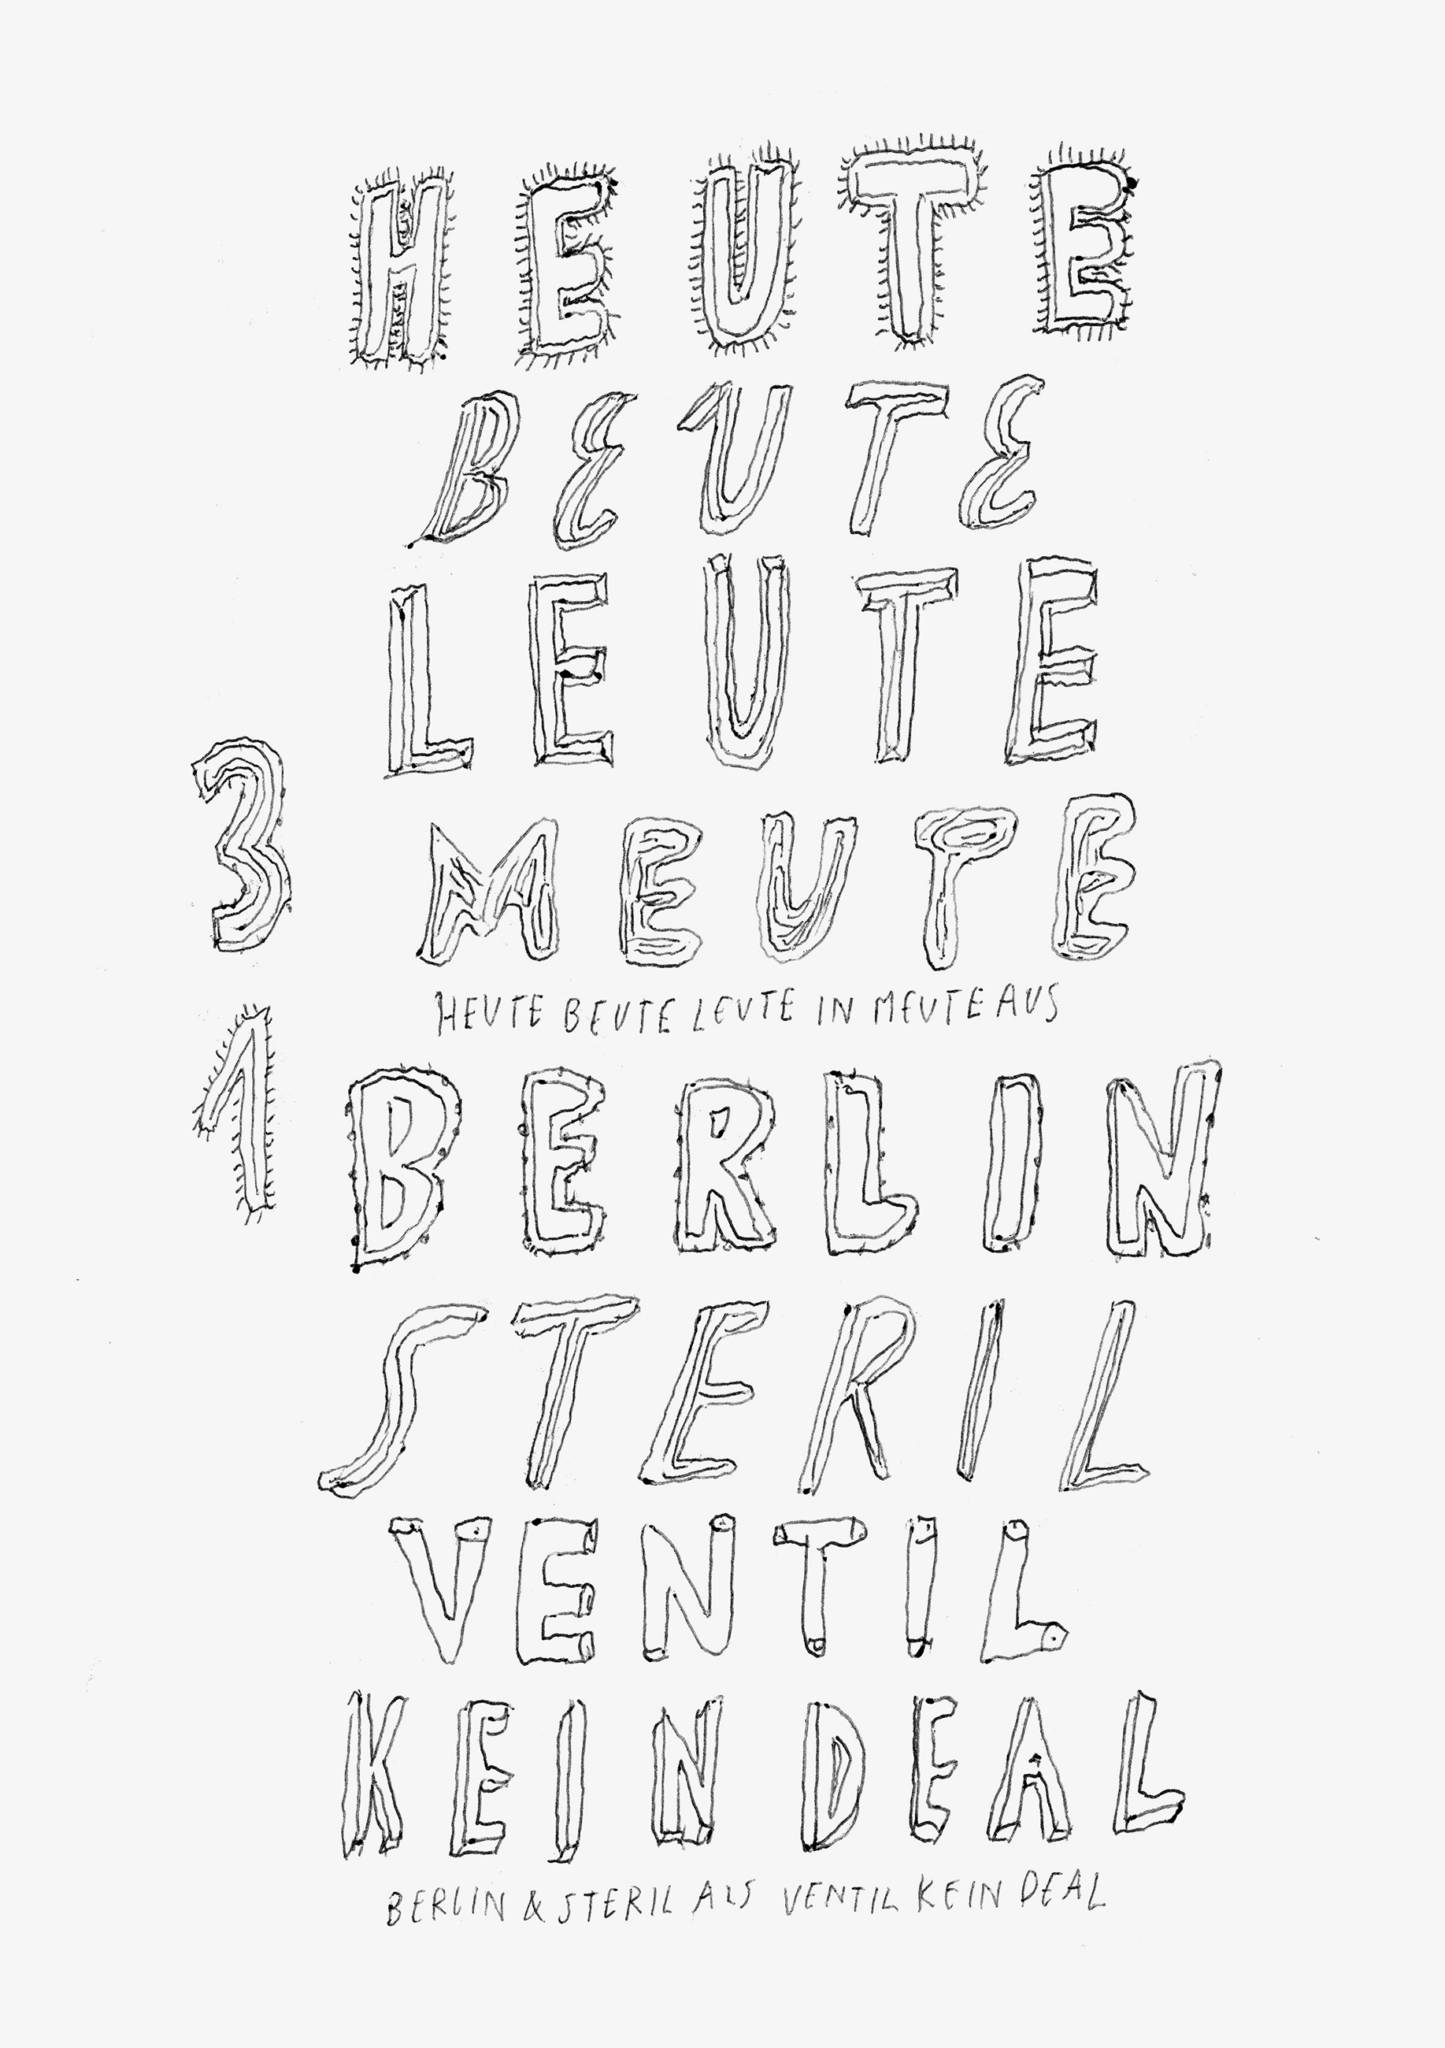 HEUTE
BEUTE
LEUTE
3
MEUTE
HEUTE BEUTE LEUTE IN MEUTE AUS
1
BERLIN
STERIL
VENTIL
KEIN DEAL
BERLIN & STERIL ALS VENTIL KEIN DEAL